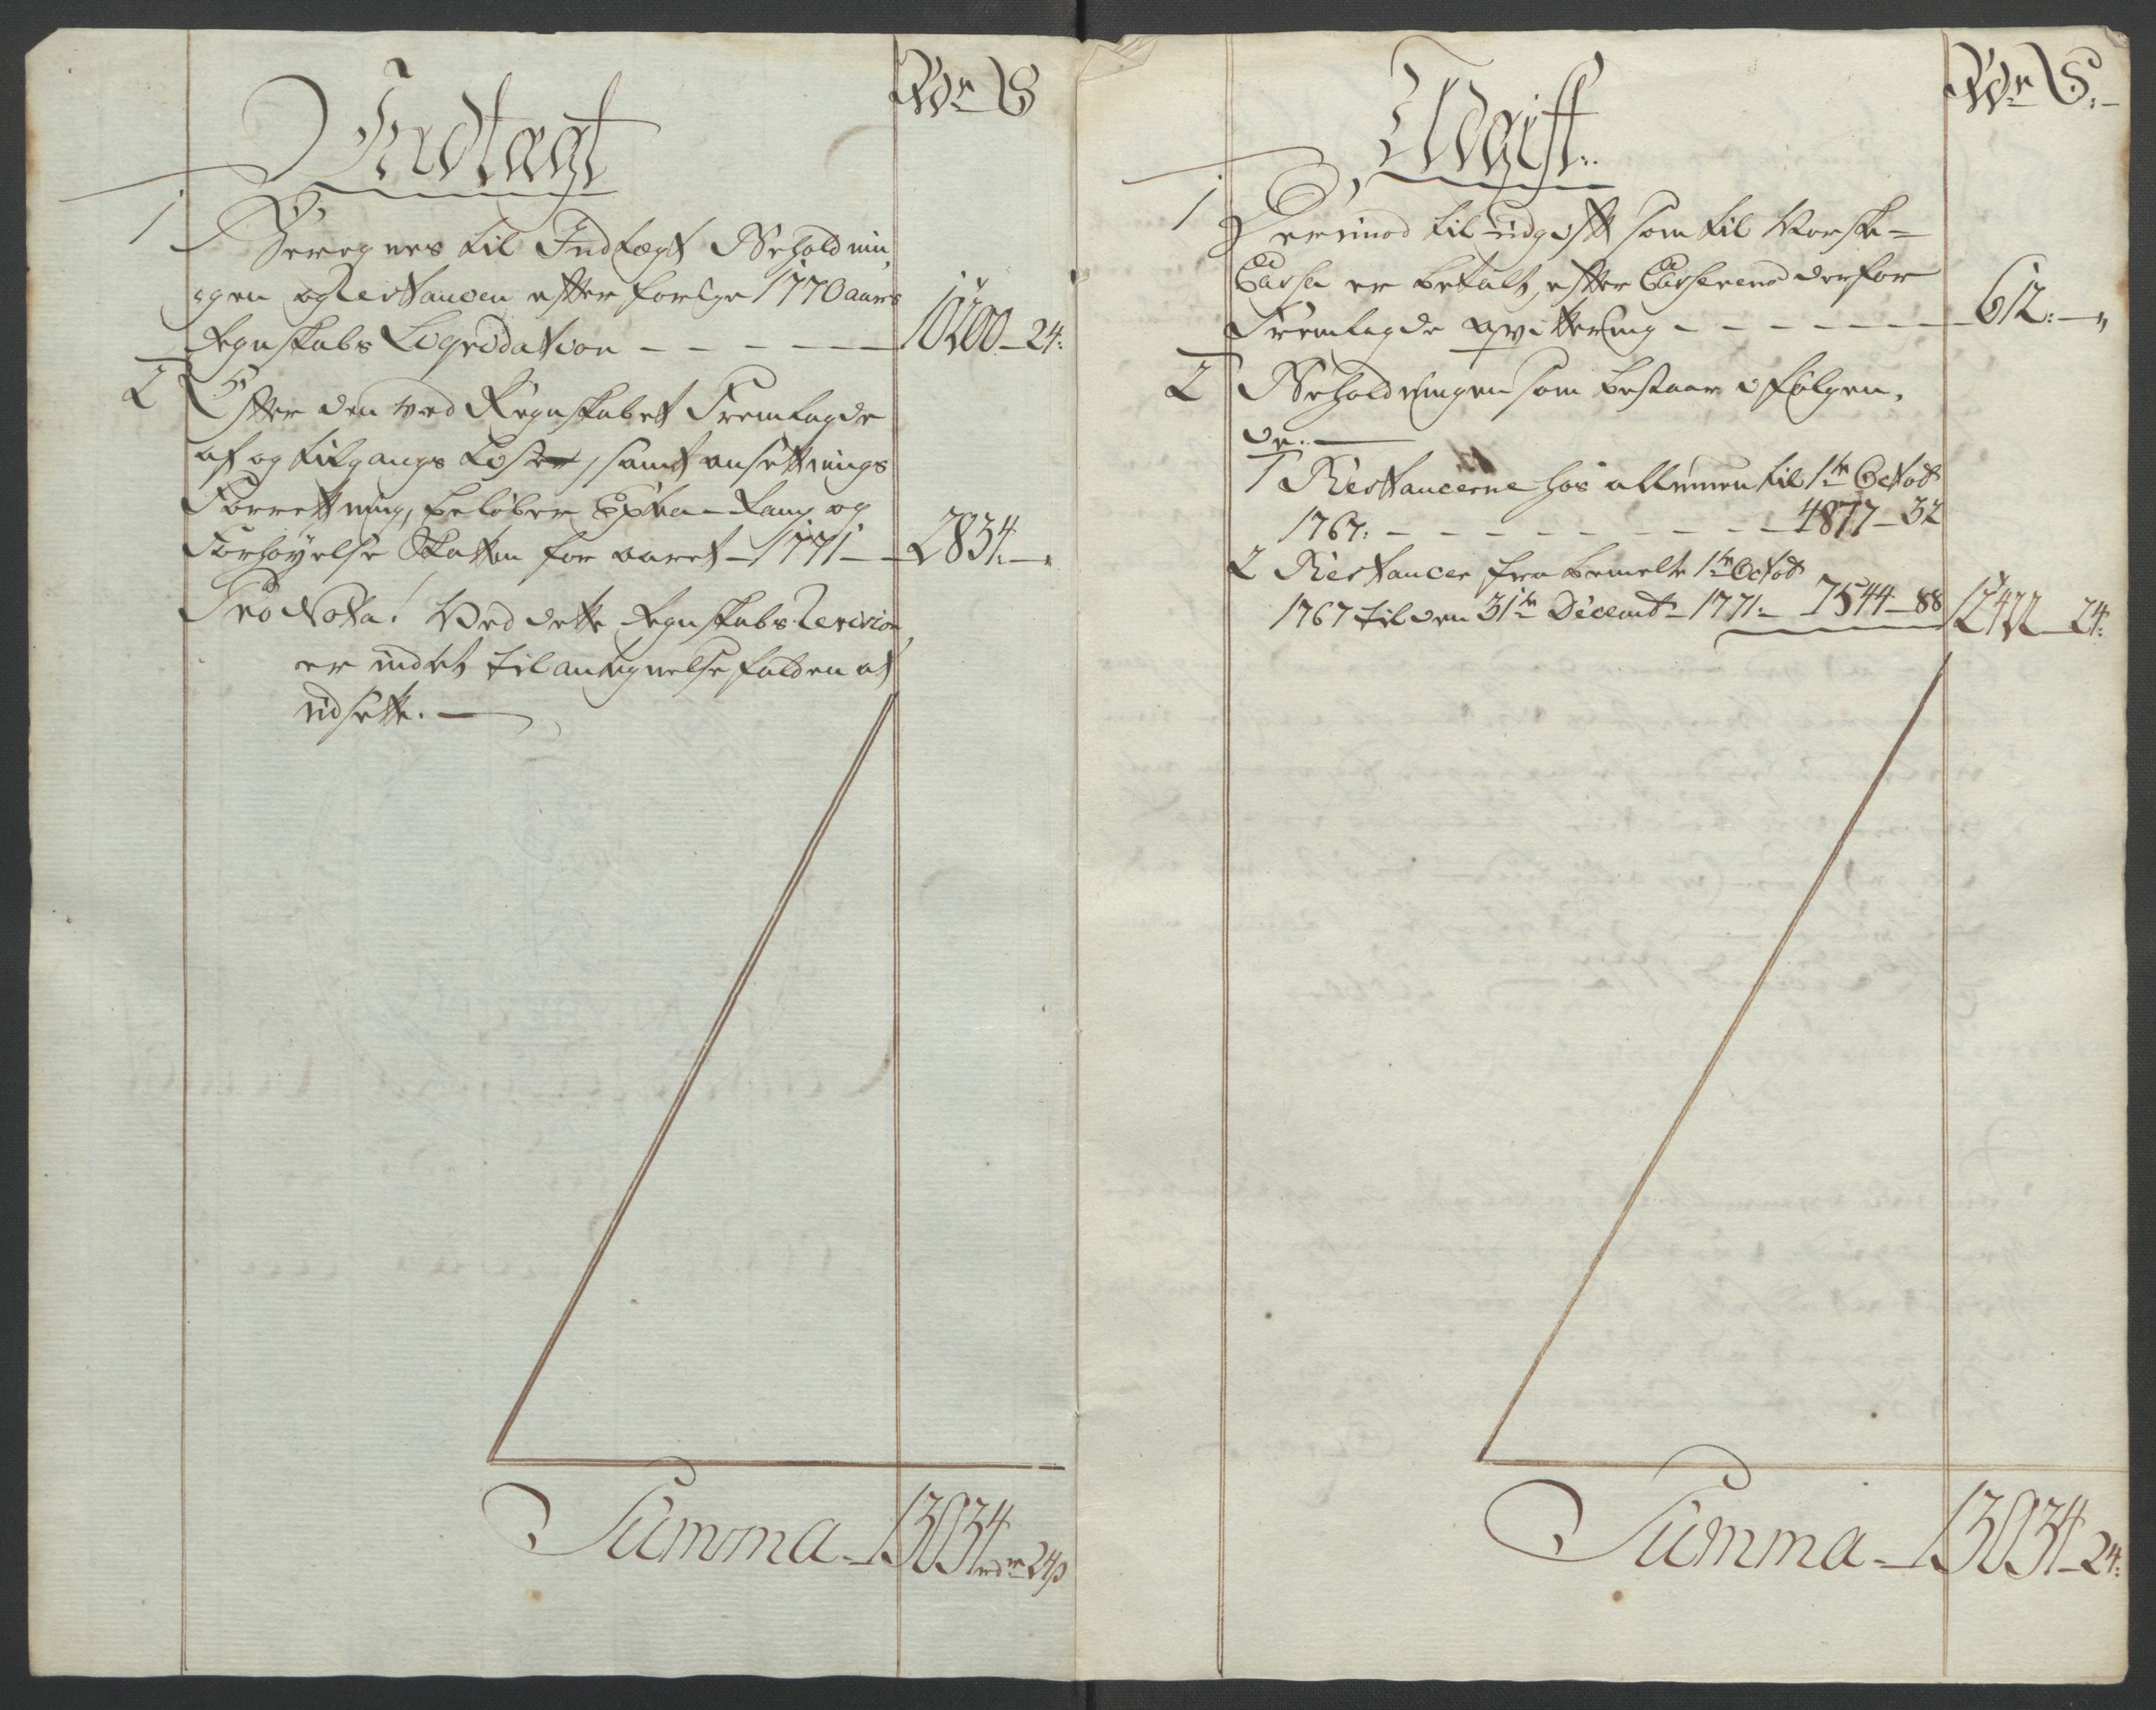 Indtægt
Rdr ß
1 Beregnes til Indtægt Beholdnin,
gen og Restancen efter forige 1770 aars
Regnskabs Liqvidation - - - - - - 10200 - 24:
2 Efter den ved Regnskabet Fremlagde
af og tilgangs Liste, samt ansettnings
Forrettning, beløber Extra- Rang og
Forhøyelse Skatten for aaret - 1771 - - 2834. - „
Pro Nota! Ved dette Regnskabs Revision,
er indtet til antegnelse falden at
udsette. —
Summa - 13034 rdr 24 ß
Udgift..
Rdr ß. -
1 Derimod til udgift som til Norske-
Cassa er betalt, efter Casserens derfor
Fremlagde qvittering - - - - - - - 612: - „
2 Beholdningen som bestaar i følgen,
de. —
1 Restancerne hos allmuen til 1te Octob
1767: - - - - - - - - - 4877 - 32
2 Restancer fra bemelte 1te Octob
1767 til den 31te Decemb 1771: - 7544 - 88 12422 - 24:
Summa - 13034 - 24: